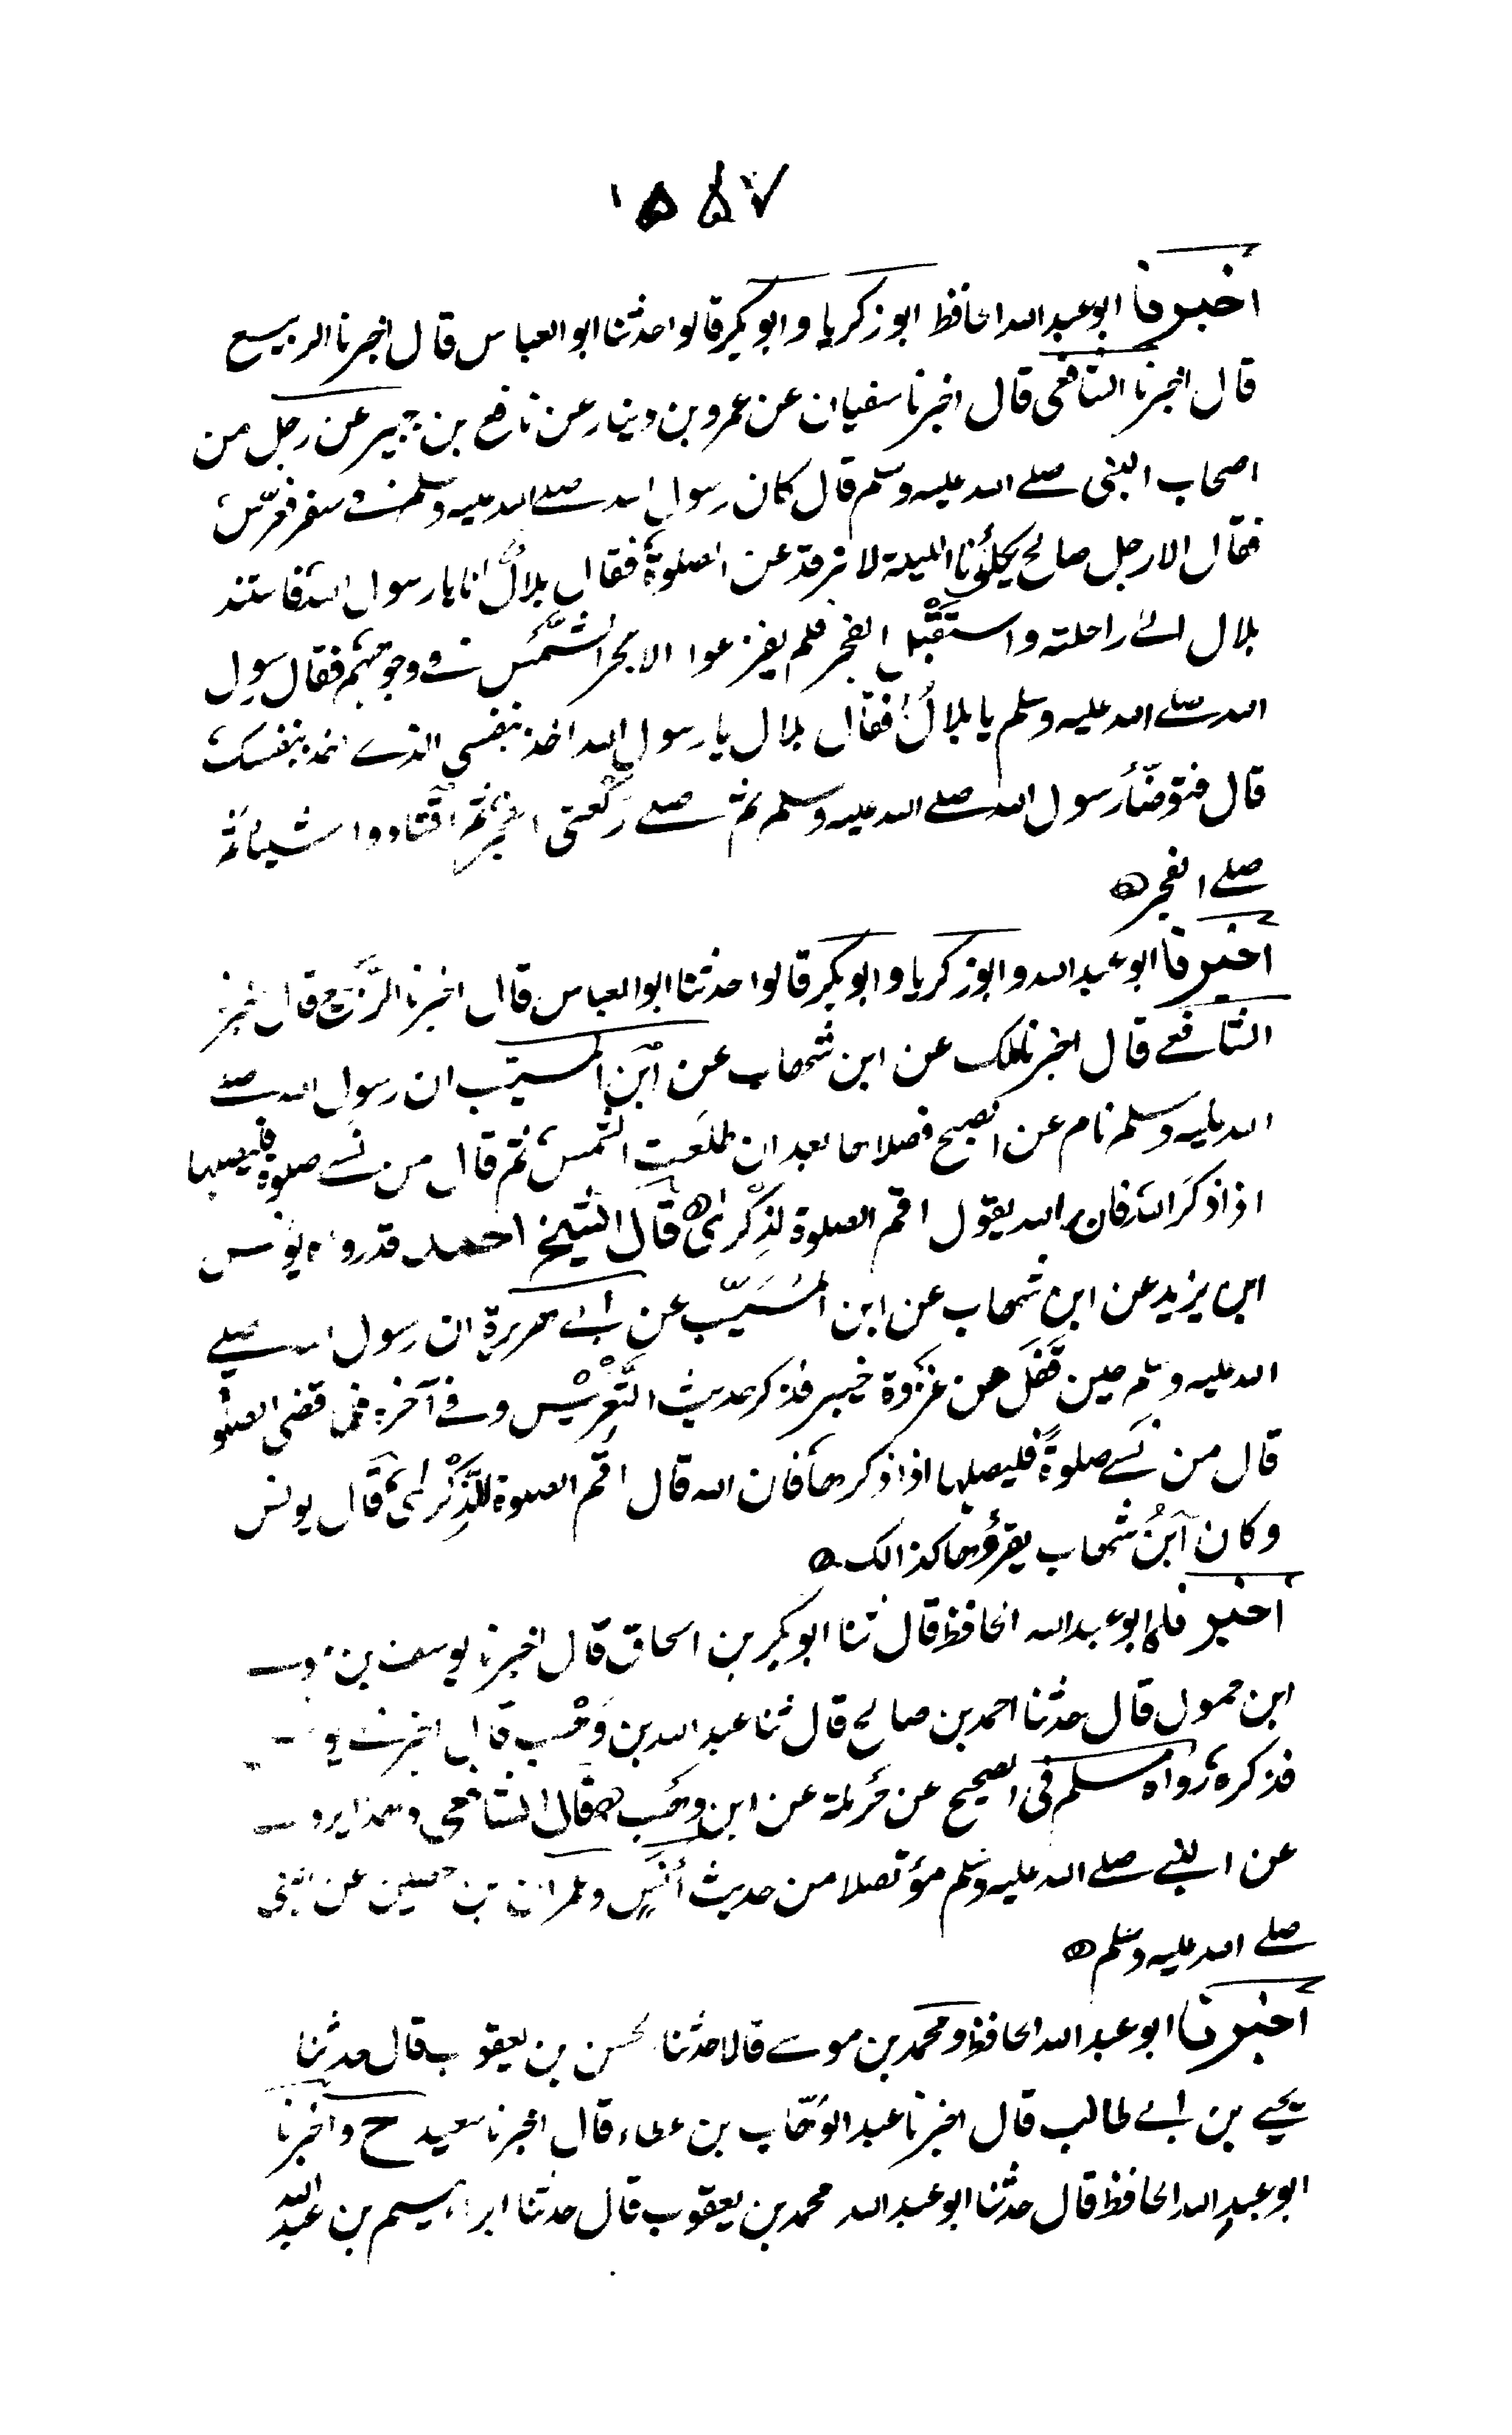 ١٥٥٧
اخبرنا ابو عبد الله الحافظ ابو زكريا وابو بكر قالوا حدثنا ابو العباس قال اخبرنا الربيع
قال اخبرنا الشافعي قال اخبرنا سفيان عن عمرو بن دينار عن نافع بن جبير عن رجل من
اصحاب النبي صلے الله عليه وسلم قال كان رسول الله صلے الله عليه وسلم في سفر فعرّس
فقال الا رجل صالح يكلؤنا الليلة لا نرقد عن الصلوة فقال بلالٌ انا يا رسول الله فاستند
بلال الے راحلته واستقبل الفجر فلم يفزعوا الا بحر الشمس في وجوههم فقال رسول
الله صلے الله عليه وسلم يا بلالُ فقال بلال يا رسول الله اخذ بنفسي الذے اخذ بنفسك
قال فتوضّأ رسول الله صلے الله عليه وسلم ثم صلے ركعتي الفجر ثم اقتادوا شيئا ثم
صلے الفجر
اخبرنا ابو عبد الله وابو زكريا وابو بكر قالوا حدثنا ابو العباس قال اخبرنا الربيع قال اخبرنا
الشافعے قال اخبرنا ملك عن ابن شهاب عن ابن المسيّب ان رسول الله صلے
الله عليه وسلم نام عن الصبح فصلاها بعد ان طلعت الشمس ثم قال من نسے صلوة فليصلها
اذا ذكر الله فان الله يقول اقم الصلوة لذكرى قال الشيخ احمد قد رواه يونس
ابن يزيد عن ابن شهاب عن ابن المسَيّب عن ابے هريرة ان رسول الله صلے
الله عليه وسلم حين قفَل من غزوة خيبر فذكر حديث التعريس وفے آخره فلما قضى الصلو
قال من نسے صلوةً فليصلها اذا ذكرها فان الله قال اقم الصلوة للذكرى قال يونس
وكان ابنُ شهاب يقرؤها كذالك
اخبرنا ابو عبد الله الحافظ قال ثنا ابو بكر بن اسحاق قال اخبرنا يوسف بن
ابن حمول قال حدثنا احمد بن صالح قال ثنا عبد الله بن وهب قال اخبرنے
فذكره رواه مسلم في الصحيح عن حرملة عن ابن وهب قال الشافعي وهذا يروے
عن النبے صلے الله عليه وسلم مؤتصلا من حديث أنس وعمران بن حصين عن النبي
صلے الله عليه وسلم
اخبرنا ابو عبد الله الحافظ ومحمد بن موسے قالا حدثنا الحسن بن يعقوب قال حدثنا
يحيے بن ابے طالب قال اخبرنا عبد الوهّاب بن عطاء قال اخبرنا سعيد ح واخبرنا
ابو عبد الله الحافظ قال حدثنا ابو عبد الله محمد بن يعقوب قال حدثنا ابراهيم بن عبد الله